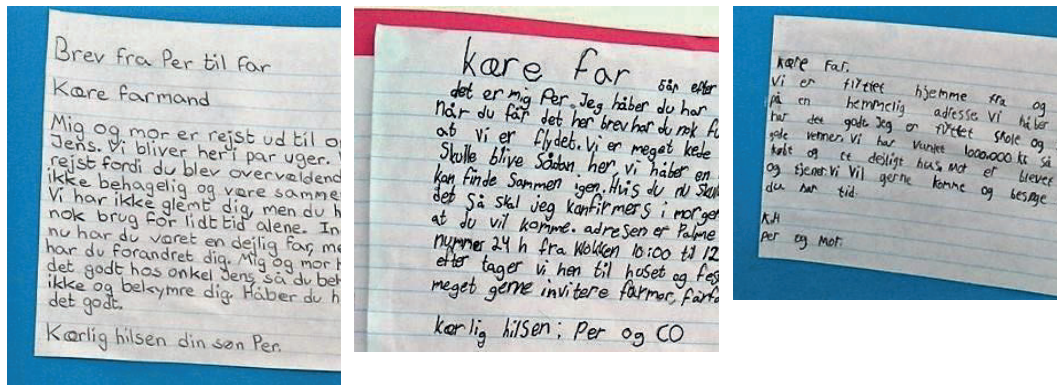 Brev fra Per til far
Kære farmand
Mig og mor er rejst ud til o
Jens. Vi bliver her i par uger.
rejst fordi du blev overvældend
ikke behagelig og være samme
Vi har ikke glemt dig, men du h
nok brug for lidt tid alene. In
nu har du været en dejlig far, me
har du forandret dig. Mig og mor h
det godt hos onkel Jens, så du beh
ikke og bekymre dig. Håber du h
det godt.
Kærlig hilsen din søn Per.
kære far
det er mig Per. Jeg håber du har
når du får det her brev har du nok fu
at vi er flydet. Vi er meget kede
Skulle blive Sådan her, vi håber en
kan finde Sammen igen. Hvis du nu Skul
det så skal jeg konfirmers i morgen
at du vil komme. adresen er Palme
nummer 24 h fra klokken 10:00 til 12
efter tager vi hen til huset og fes
meget gerne invitere farmor, farfa
kærlig hilsen: Per og CO
kære Far.
Vi er flyttet hjemme fra og
på en hemmelig adresse Vi håber
har det godt Jeg er flyttet skole og
gode venner. Vi har vundet 1000.000 kr så
købt og et dejligt hus. Mor er blevet
og tjener. Vi vil gerne komme og besøge
du har tid.
K.H
Per og Mor.